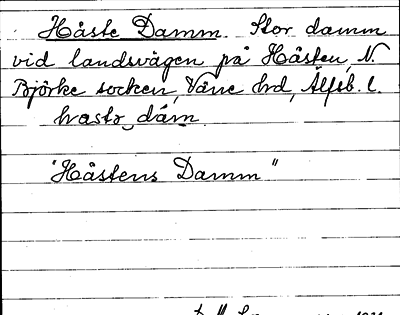 Håste Damm. Stor damm
vid landsvägen på Håsten, N.
Björke socken, Väne hd, Älfsb. l.
hvasto dám
"Håstens Damm"